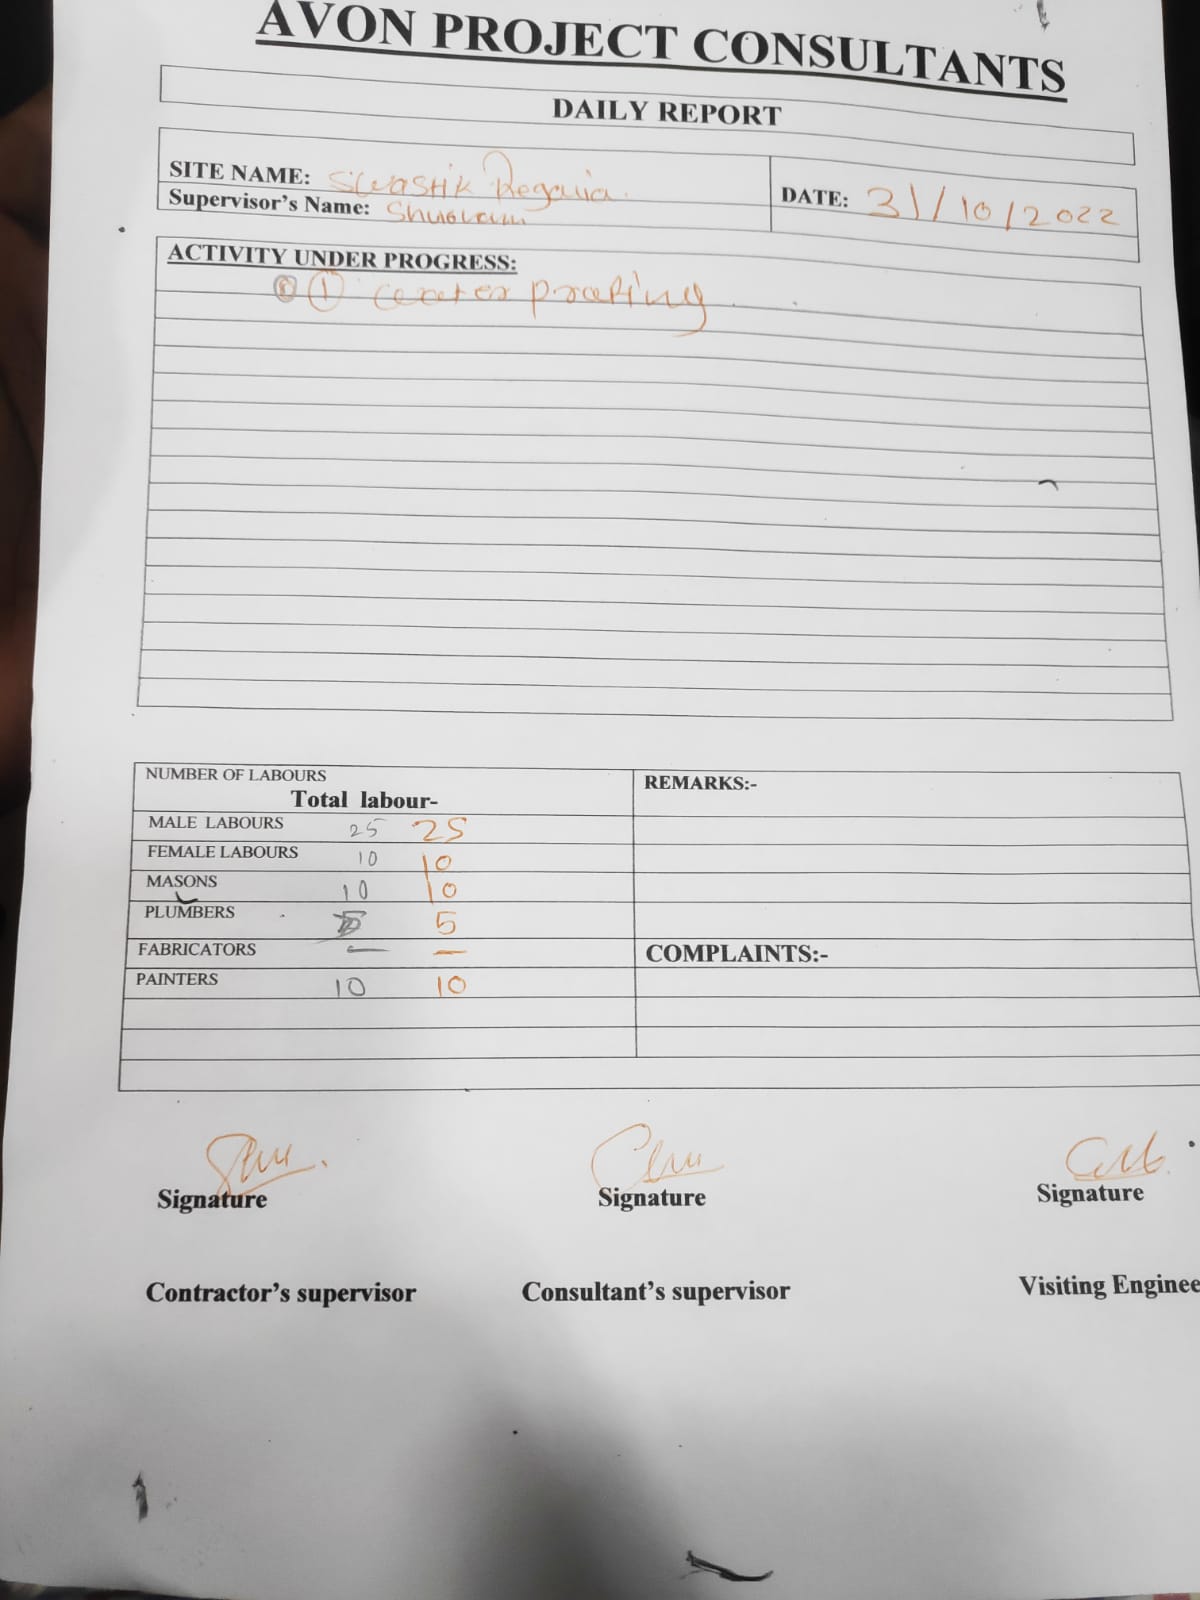 AVON PROJECT CONSULTANTS
DAILY REPORT
SITE NAME: Swastik Regalia.
Supervisor's Name:
DATE: 31/10/2022
ACTIVITY UNDER PROGRESS:
① water profing
NUMBER OF LABOURS
Total labour-
REMARKS:-
MALE LABOURS 25 25
FEMALE LABOURS 10 10
MASONS 10 10
PLUMBERS 5
FABRICATORS — —
COMPLAINTS:-
PAINTERS 10 10
Signature Signature Signature
Contractor's supervisor Consultant's supervisor Visiting Enginee